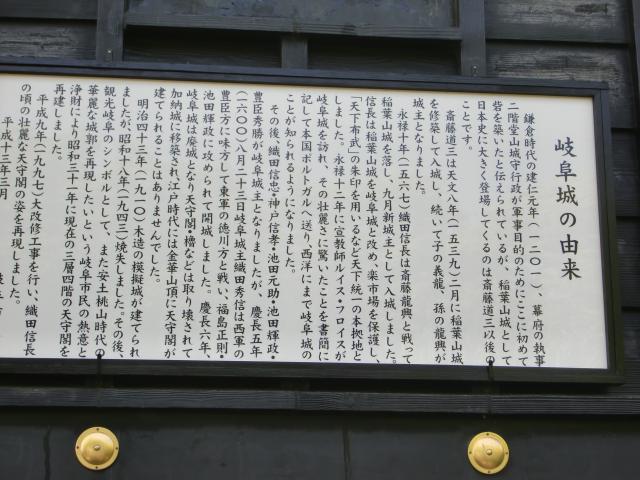 岐阜城の由来
鎌倉時代の建仁元年(一二〇一)、幕府の執事
二階堂山城守行政が軍事目的のためにここに初めて
砦を築いたと伝えられているが、稲葉山城として
日本史に大きく登場してくるのは斎藤道三以後の
ことです。
斎藤道三は天文八年(一五三九)二月に稲葉山城
を修築して入城し、続いて子の義龍、孫の龍興が
城主となりました。
永禄十年(一五六七)織田信長は斎藤龍興と戦って
稲葉山城を落し、九月新城主として入城しました。
信長は稲葉山城を岐阜城と改め、楽市場を保護し、
「天下布武」の朱印を用いるなど天下統一の本拠地と
しました。永禄十二年に宣教師ルイス・フロイスが
岐阜城を訪れ、その壮麗さに驚いたことを書簡に
記して本国ポルトガルへ送り、西洋にまで岐阜城の
ことが知られるようになりました。
その後、織田信忠・神戸信孝・池田元助・池田輝政・
豊臣秀勝が岐阜城主となりましたが、慶長五年
(一六〇〇)八月二十三日岐阜城主織田秀信は西軍の
豊臣方に味方して東軍の徳川方と戦い、福島正則・
池田輝政に攻められて開城しました。慶長六年、
岐阜城は廃城となり天守閣・櫓などは取り壊されて
加納城に移築され、江戸時代には金華山頂に天守閣が
建てられることはありませんでした。
明治四十三年(一九一〇)木造の模擬城が建てられ
ましたが、昭和十八年(一九四三)焼失しました。その後、
観光岐阜のシンボルとして、また安土桃山時代の
華麗な城郭を再現したいという岐阜市民の熱意と
浄財により昭和三十一年に現在の三層四階の天守閣が
再建しました。
平成九年(一九九七)大改修工事を行い、織田信長
の頃の壮麗な天守閣の姿を再現しました。
平成十三年三月